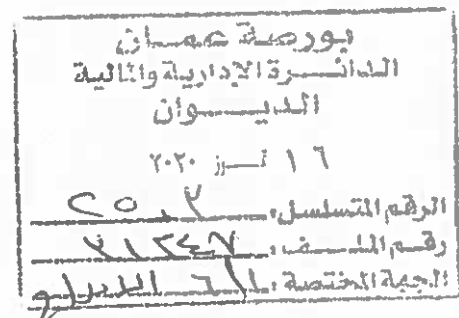 بورصة عمان
الدائرة الإدارية والمالية
الديوان
١٦ تموز ٢٠٢٠
الرقم المتسلسل:
رقم الملف: ٣١٢٤٧
الجهة المختصة: